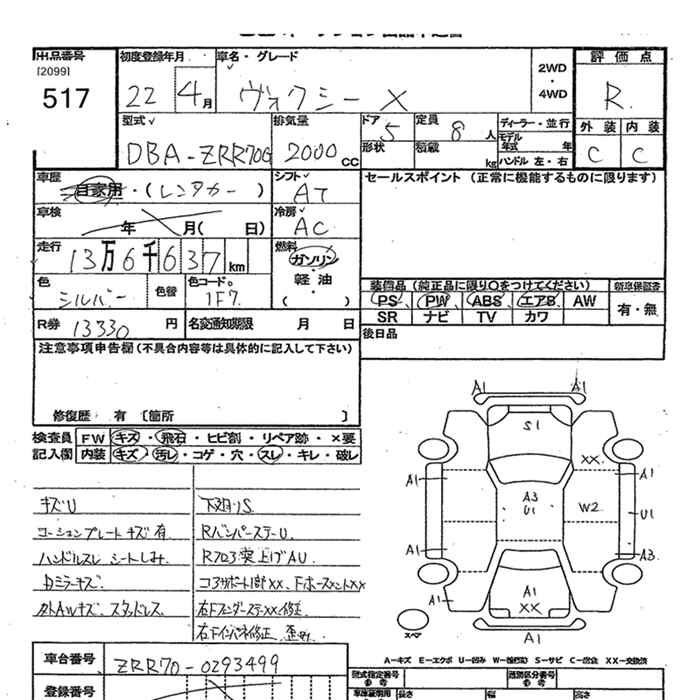 出品番号 初度登録年月 車名・グレード 2WD・4WD 評価点
[2099]
517 22 4月 ヴォクシー X R
型式 排気量 ドア 定員 ディーラー・並行 外装 内装
DBA-ZRR70G 2000cc 5 8人 モデル年式 年 C C
形状 積載 kg ハンドル 左・右
車歴 シフト セールスポイント (正常に機能するものに限ります)
自家用・(レンタカー) AT
車検 冷房
年 月( 日) AC
走行 燃料
13万6千637km ガソリン
軽油
( )
色 色替 色コード 装備品 (純正品に限り○をつけてください) 新車保証書
シルバー 1F7 PS PW ABS エアB AW 有・無
SR ナビ TV カワ
R券 13330円 名変通知期限 月 日 後日品
注意事項申告欄(不具合内容等は具体的に記入して下さい)
修復歴 有 〔箇所 〕
検査員 FW キズ・飛石・ヒビ割・リペア跡・×要
記入欄 内装 キズ・汚レ・コゲ・穴・スレ・キレ・破レ
キズU 下廻りS
コーションプレートキズ有 RバンパーステーU
ハンドルスレ シートしみ
カミラーキズ
外AWキズ、スタッドレス 右Fフェンダーステー××修正
右Fインパネ修正、歪み
A1 A1
S1
XX
A1 A1
A3
U1 W2 U1
A1 A3
A1 A1
XX
A1
スペア
A-キズ E-エクボ U-凹み W-補修(波) S-サビ C-腐食 XX-交換済
車台番号 ZRR70-0293499
登録番号 型式指定番号 類別区分番号
長さ 幅 高さ